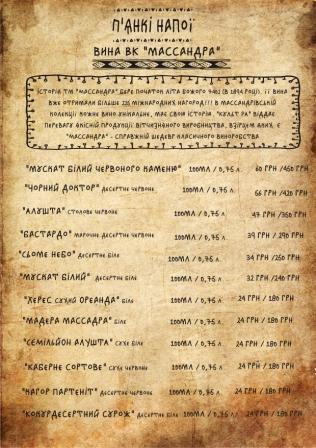 П'ЯНКІ НАПОЇ
ВИНА ВК "МАССАНДРА"
ІСТОРІЯ ТМ "МАССАНДРА" БЕРЕ ПОЧАТОК ЛІТА БОЖОГО (В 1894 РОЦІ). ЇЇ ВИНА
ВЖЕ ОТРИМАЛИ БІЛЬШЕ 235 МІЖНАРОДНИХ НАГОРОД!!! В МАССАНДРІВСЬКІЙ
КОЛЕКЦІЇ КОЖНЕ ВИНО УНІКАЛЬНЕ, МАЄ СВОЮ ІСТОРІЯ. "КУЛЬТ РА" ВІДДАЄ
ПЕРЕВАГУ ЯКІСНІЙ ПРОДУКЦІЇ ВІТЧИЗНЯНОГО ВИРОБНИЦТВА, ВЗІРЦЕМ ЯКИХ, Є
"МАССАНДРА" - СПРАВЖНІЙ ШЕДЕВР КЛАСИЧНОГО ВИНОРОБСТВА
"МУСКАТ БІЛИЙ ЧЕРВОНОГО КАМЕНЮ" 100МЛ / 0,75 Л. 60 ГРН /450 ГРН
"ЧОРНИЙ ДОКТОР" ДЕСЕРТНЕ ЧЕРВОНЕ 100МЛ / 0,75 Л. 56 ГРН /420 ГРН
"АЛУШТА" СТОЛОВЕ ЧЕРВОНЕ 100МЛ / 0,75 Л. 47 ГРН /350 ГРН
"БАСТАРДО" МАРОЧНЕ ДЕСЕРТНЕ ЧЕРВОНЕ 100МЛ / 0,75 Л. 39 ГРН / 290 ГРН
"СЬОМЕ НЕБО" ДЕСЕРТНЕ БІЛЕ 100МЛ / 0,75 Л. 34 ГРН /250 ГРН
"МУСКАТ БІЛИЙ" ДЕСЕРТНЕ БІЛЕ 100МЛ / 0,75 Л. 32 ГРН /240 ГРН
"ХЕРЕС СУХИЙ ОРЕАНДА" БІЛЕ 100МЛ / 0,75 Л. 24 ГРН / 180 ГРН
"МАДЕРА МАССАДРА" БІЛЕ 100МЛ / 0,75 Л. 24 ГРН / 180 ГРН
"СЕМІЛЬЙОН АЛУШТА" СУХЕ БІЛЕ 100МЛ / 0,75 Л. 24 ГРН / 180 ГРН
"КАБЕРНЕ СОРТОВЕ" СУХЕ ЧЕРВОНЕ 100МЛ / 0,75 Л. 24 ГРН / 180 ГРН
"КАГОР ПАРТЕНІТ" ДЕСЕРТНЕ ЧЕРВОНЕ 100МЛ / 0,75 Л. 24 ГРН / 180 ГРН
"КОКУРДЕСЕРТНИЙ СУРОЖ" ДЕСЕРТНЕ БІЛЕ 100МЛ / 0,75 Л. 24 ГРН / 180 ГРН